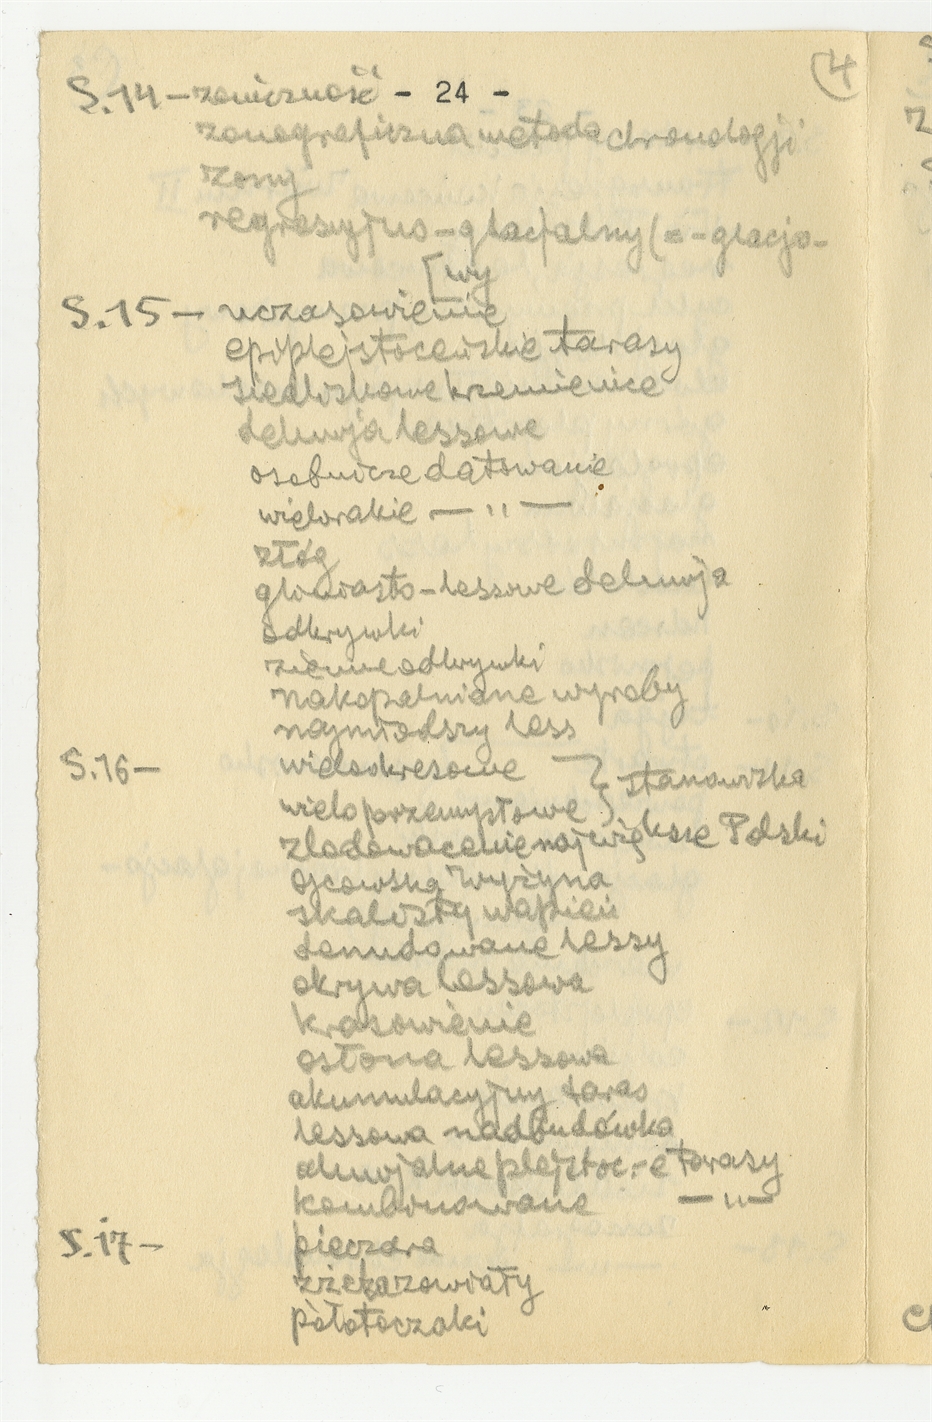 (4
S.14 – zoniczność - 24 -
zonograficzna metoda chronologji
zony
regresyjno-glacjalny (= -glacjo-
[wy
S.15 – uczasowienie
epiplejstoceńskie tarasy
siedliskowe krzemienice
deluwja lessowe
osobnicze datowanie
wielorakie — " —
złóg
gliniasto-lessowe deluwja
odkrywki
ziemne odkrywki
nakopalniane wyroby
najmłodszy less
S.16 – wielookresowe } stanowiska
wieloprzemysłowe
zlodowacenie największe Polski
ojcowska wyżyna
skalisty wapień
denudowane lessy
okrywa lessowa
krasowienie
osłona lessowa
akumulacyjny taras
lessowa nadbudówka
aluwjalne plejstoc.-e tarasy
kombinowane — " —
S.17 – pieczara
zżelazowiały
półotoczaki